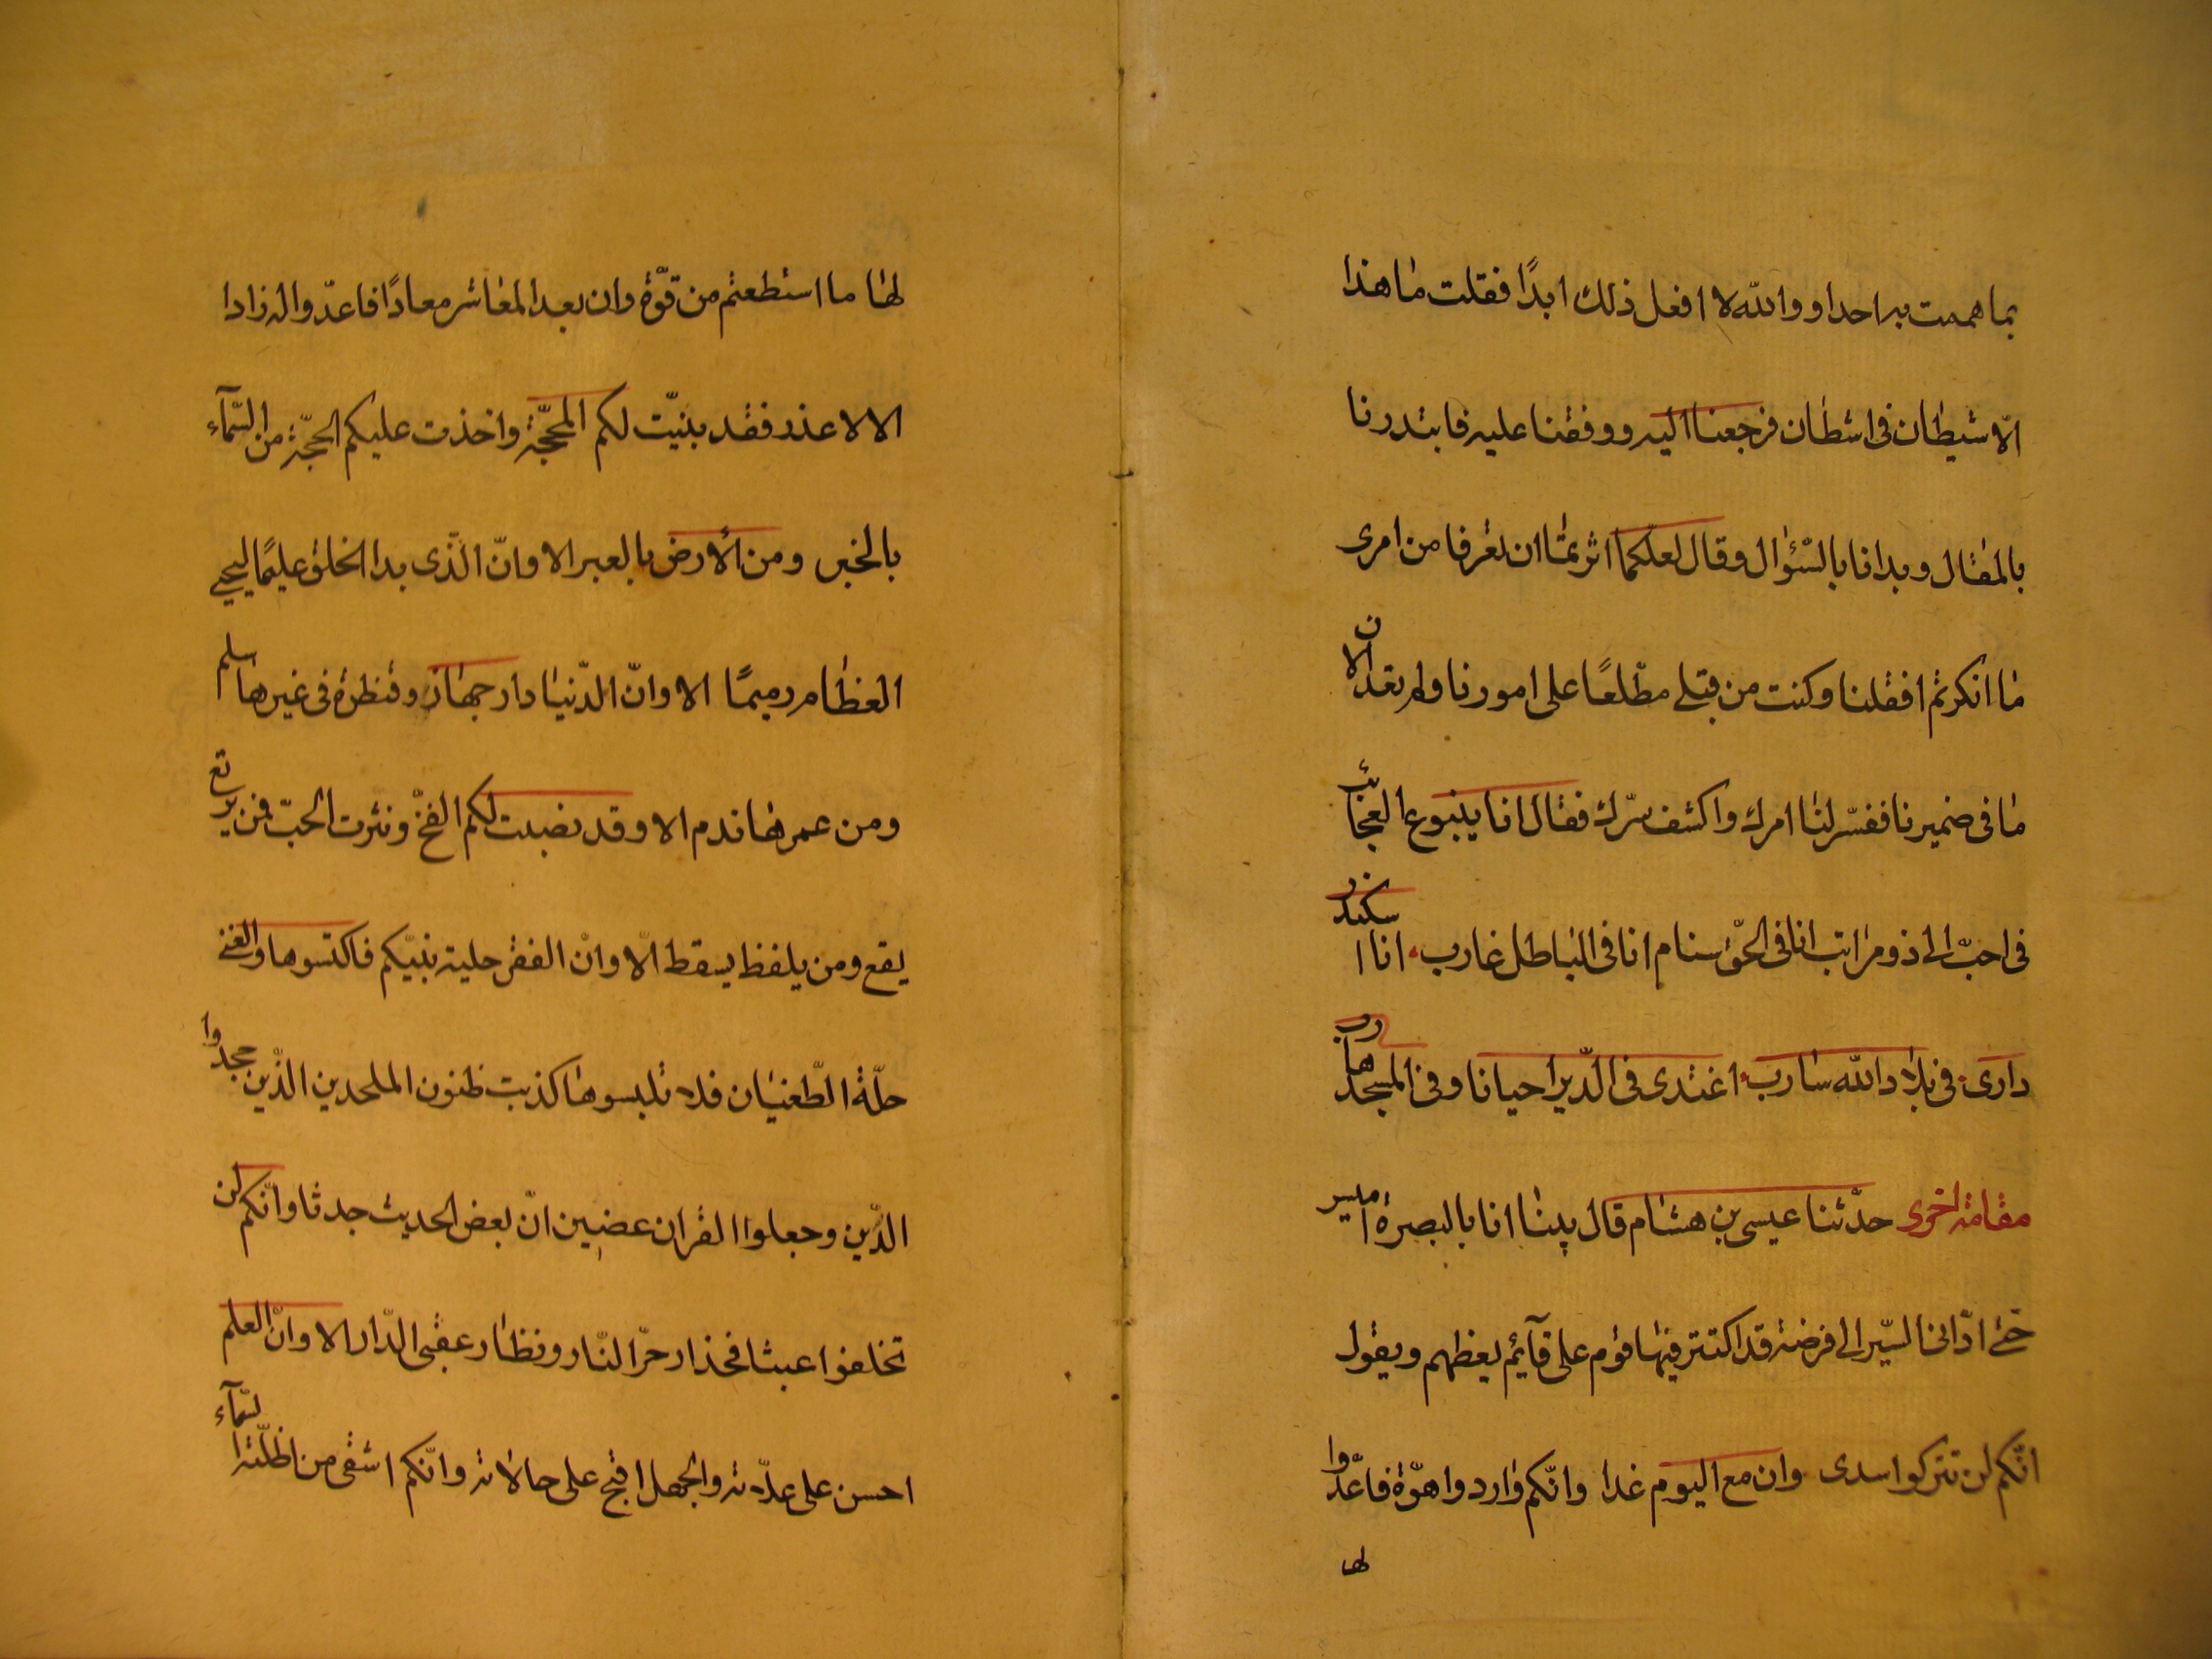 بما هممت به احدا و والله لا افعل ذلك ابدًا فقلت ما هذا
الّا شيطان فى اشطان فرجعنا اليه ووقفنا عليه فابتدرنا
بالمقال وبدانا بالسّؤال وقال لعلّكما اثرتما ان تعرفا من امرى
ما انكرتم افقلنا وكنت من قبل مطّلعًا على امورنا ولم تعد الان
ما فى ضميرنا ففسّر لنا امرك واكشف سرّك فقال انا ينبوع العجائب
فى احبّ الى ذو مراتب انا فى الحقّ سنام انا فى الباطل غارب انا اسكندر
دارى فى بلاد الله سارب اغتدى فى الدّير احيانا وفى المسجد راهب
مقامة اخرى حدّثنا عيسى بن هشام قال بينا انا بالبصرة اميس
حتى ادّانى السّير الى فرضة قد اكتثر فيها قوم على قآئم يعظهم ويقول
انّكم لن تتركوا سدى وان مع اليوم غدا وانّكم واردوا هوّة فاعدّوا
لها
لها ما استطعتم من قوّة وان بعد المعاشر معادًا فاعدّوا له زادا
الا لا عذر فقد بنيّت لكم المحجّة واخذت عليكم الحجّة من السّمآء
بالخبر ومن الأرض بالعبر الا وانّ الّذى بدا الخلق عليمًا ليحيى
العظام رميمًا الا وانّ الدّنيا دار جهاز وقنطرة فى غيرها سلم
ومن عمرها ندم الا وقد نصبت لكم الفخّ ونثرت الحبّ فمن يرتع
يقع ومن يلفظ يسقط الّا وانّ الفقر حلية نبيّكم فاكتسوها والغنى
حلّة الطّغيان فلا تلبسوها كذبت ظنون الملحدين الّذين جحدوا
الدّين وجعلوا القران عضين انّ بعض الحديث جدثا وانّكم لن
تخلقوا عبثا فحذار حرّ النّار ونظار عقبى الدّار الا وانّ العلم
احسن على علّاته والجهل اقبح على حالاته وانّكم اشقى من اظلّته السّمآء